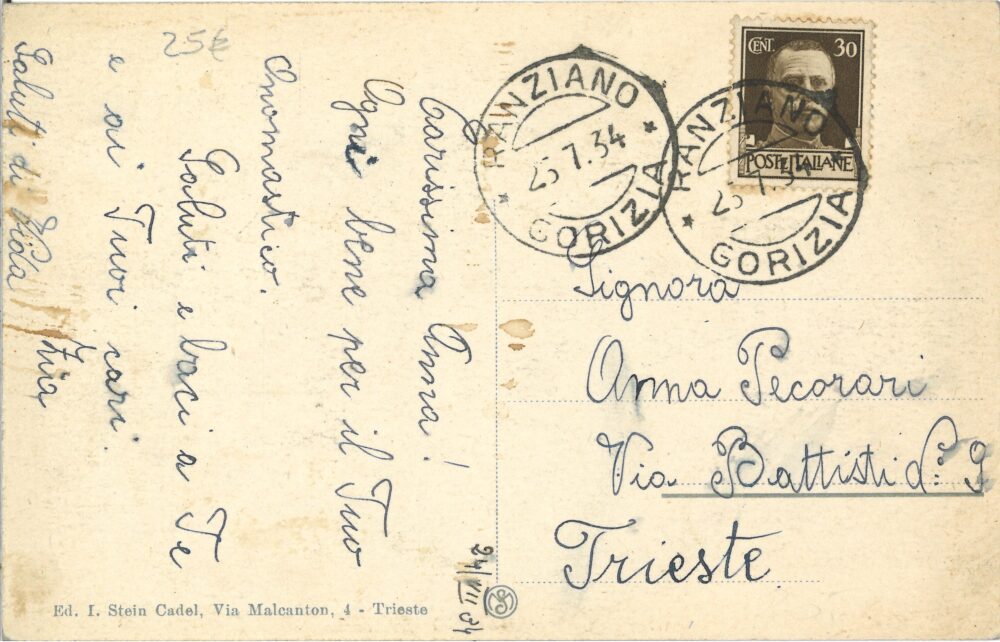 25€
Carissima Anna!
Ogni bene per il Tuo
Onomastico.
Saluti e baci a Te
e ai Tuoi cari.
Zia
Saluti di Vida
24/VII 34
Ed. I. Stein Cadel, Via Malcanton, 4 - Trieste
RANZIANO
25.7.34
GORIZIA
RANZIANO
25.7.34
GORIZIA
CENT. 30
POSTE ITALIANE
Signora
Anna Pecorari
Via Battisti 9
Trieste